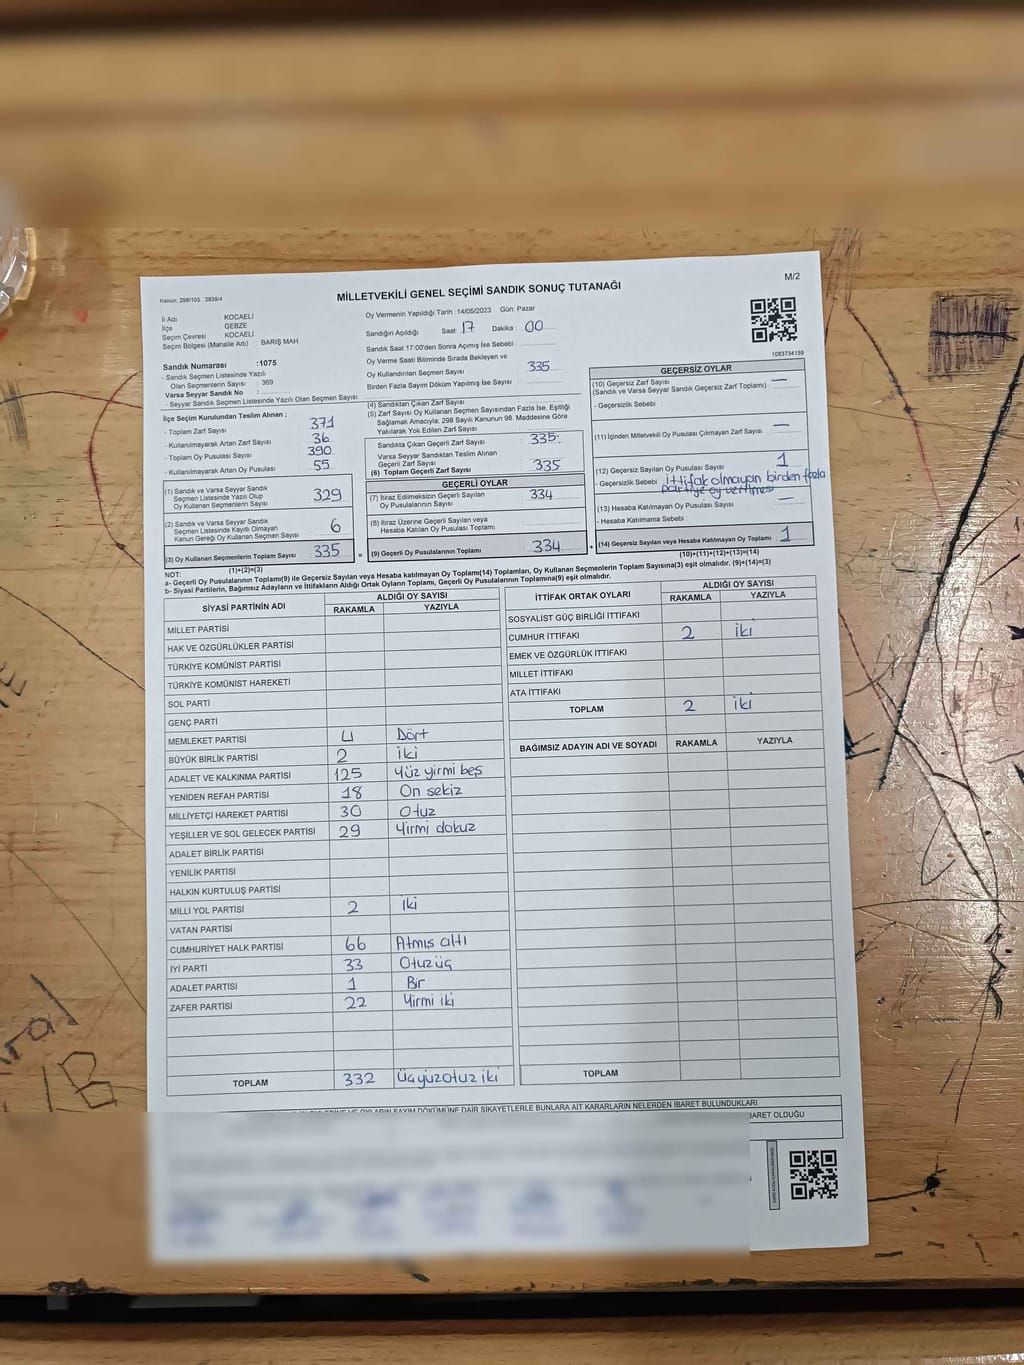 Kanun, 298/105 . 2839/4
M/2
MİLLETVEKİLİ GENEL SEÇİMİ SANDIK SONUÇ TUTANAĞI
İl Adı KOCAELİ
İlçe GEBZE
Seçim Çevresi KOCAELİ
Seçim Bölgesi (Mahalle Adı) BARIŞ MAH
Sandık Numarası :1075
- Sandık Seçmen Listesinde Yazılı
Olan Seçmenlerin Sayısı : 369
Varsa Seyyar Sandık No :
- Seyyar Sandık Seçmen Listesinde Yazılı Olan Seçmen Sayısı:
Oy Vermenin Yapıldığı Tarih :14/05/2023 Gün: Pazar
Sandığın Açıldığı Saat: 17 Dakika 00
Sandık Saat 17:00'den Sonra Açımış İse Sebebi :
Oy Verme Saati Bitiminde Sırada Bekleyen ve
Oy Kullandırılan Seçmen Sayısı 335
Birden Fazla Sayım Döküm Yapılmış İse Sayısı :
1083734159
İlçe Seçim Kurulundan Teslim Alınan ;
- Toplam Zarf Sayısı 371
- Kullanılmayarak Artan Zarf Sayısı 36
- Toplam Oy Pusulası Sayısı 390
- Kullanılmayarak Artan Oy Pusulası 55
(1) Sandık ve Varsa Seyyar Sandık
Seçmen Listesinde Yazılı Olup
Oy Kullanan Seçmenlerin Sayısı 329
(2) Sandık ve Varsa Seyyar Sandık
Seçmen Listesinde Kaydı Olmayan
Kanun Gereği Oy Kullanan Seçmen Sayısı 6
(3) Oy Kullanan Seçmenlerin Toplam Sayısı 335
(1)+(2)=(3)
(4) Sandıktan Çıkan Zarf Sayısı
(5) Zarf Sayısı Oy Kullanan Seçmen Sayısından Fazla İse, Eşitliği
Sağlamak Amacıyla; 298 Sayılı Kanunun 98. Maddesine Göre
Yakılarak Yok Edilen Zarf Sayısı
Sandıkta Çıkan Geçerli Zarf Sayısı 335
Varsa Seyyar Sandıktan Teslim Alınan
Geçerli Zarf Sayısı
(6) Toplam Geçerli Zarf Sayısı 335
=
GEÇERLİ OYLAR
(7) İtiraz Edilmeksizin Geçerli Sayılan
Oy Pusulasının Sayısı 334
(8) İtiraz Üzerine Geçerli Sayılan veya
Hesaba Katılan Oy Pusulası Toplamı
(9) Geçerli Oy Pusulalarının Toplamı 334
+
GEÇERSİZ OYLAR
(10) Geçersiz Zarf Sayısı —
(Sandık ve Varsa Seyyar Sandık Geçersiz Zarf Toplamı)
- Geçersizlik Sebebi :
(11) İçinden Milletvekili Oy Pusulası Çıkmayan Zarf Sayısı —
(12) Geçersiz Sayılan Oy Pusulası Sayısı 1
- Geçersizlik Sebebi : ittifak olmayan birden fazla
partiye oy verilmesi
(13) Hesaba Katılmayan Oy Pusulası Sayısı —
- Hesaba Katılmama Sebebi :
(14) Geçersiz Sayılan veya Hesaba Katılmayan Oy Toplamı 1
(10)+(11)+(12)+(13)=(14)
NOT:
a- Geçerli Oy Pusulalarının Toplamı(9) ile Geçersiz Sayılan veya Hesaba katılmayan Oy Toplamı(14) Toplamları, Oy Kullanan Seçmenlerin Toplam Sayısına(3) eşit olmalıdır. (9)+(14)=(3)
b- Siyasi Partilerin, Bağımsız Adayların ve İttifakların Aldığı Ortak Oyların Toplamı, Geçerli Oy Pusulalarının Toplamına(9) eşit olmalıdır.
SİYASİ PARTİNİN ADI ALDIĞI OY SAYISI
RAKAMLA YAZIYLA
MİLLET PARTİSİ
HAK VE ÖZGÜRLÜKLER PARTİSİ
TÜRKİYE KOMÜNİST PARTİSİ
TÜRKİYE KOMÜNİST HAREKETİ
SOL PARTİ
GENÇ PARTİ
MEMLEKET PARTİSİ 4 Dört
BÜYÜK BİRLİK PARTİSİ 2 iki
ADALET VE KALKINMA PARTİSİ 125 Yüz yirmi beş
YENİDEN REFAH PARTİSİ 18 On sekiz
MİLLİYETÇİ HAREKET PARTİSİ 30 Otuz
YEŞİLLER VE SOL GELECEK PARTİSİ 29 Yirmi dokuz
ADALET BİRLİK PARTİSİ
YENİLİK PARTİSİ
HALKIN KURTULUŞ PARTİSİ
MİLLİ YOL PARTİSİ 2 iki
VATAN PARTİSİ
CUMHURİYET HALK PARTİSİ 66 Atmıs altı
İYİ PARTİ 33 Otuz üç
ADALET PARTİSİ 1 Bir
ZAFER PARTİSİ 22 Yirmi iki
TOPLAM 332 Üçyüzotuz iki
İTTİFAK ORTAK OYLARI ALDIĞI OY SAYISI
RAKAMLA YAZIYLA
SOSYALİST GÜÇ BİRLİĞİ İTTİFAKI
CUMHUR İTTİFAKI 2 iki
EMEK VE ÖZGÜRLÜK İTTİFAKI
MİLLET İTTİFAKI
ATA İTTİFAKI
TOPLAM 2 iki
BAĞIMSIZ ADAYIN ADI VE SOYADI RAKAMLA YAZIYLA
TOPLAM
OYLARIN SAYIM DÖKÜMÜNE DAİR ŞİKAYETLERLE BUNLARA AİT KARARLARIN NELERDEN İBARET BULUNDUKLARI
İBARET OLDUĞU